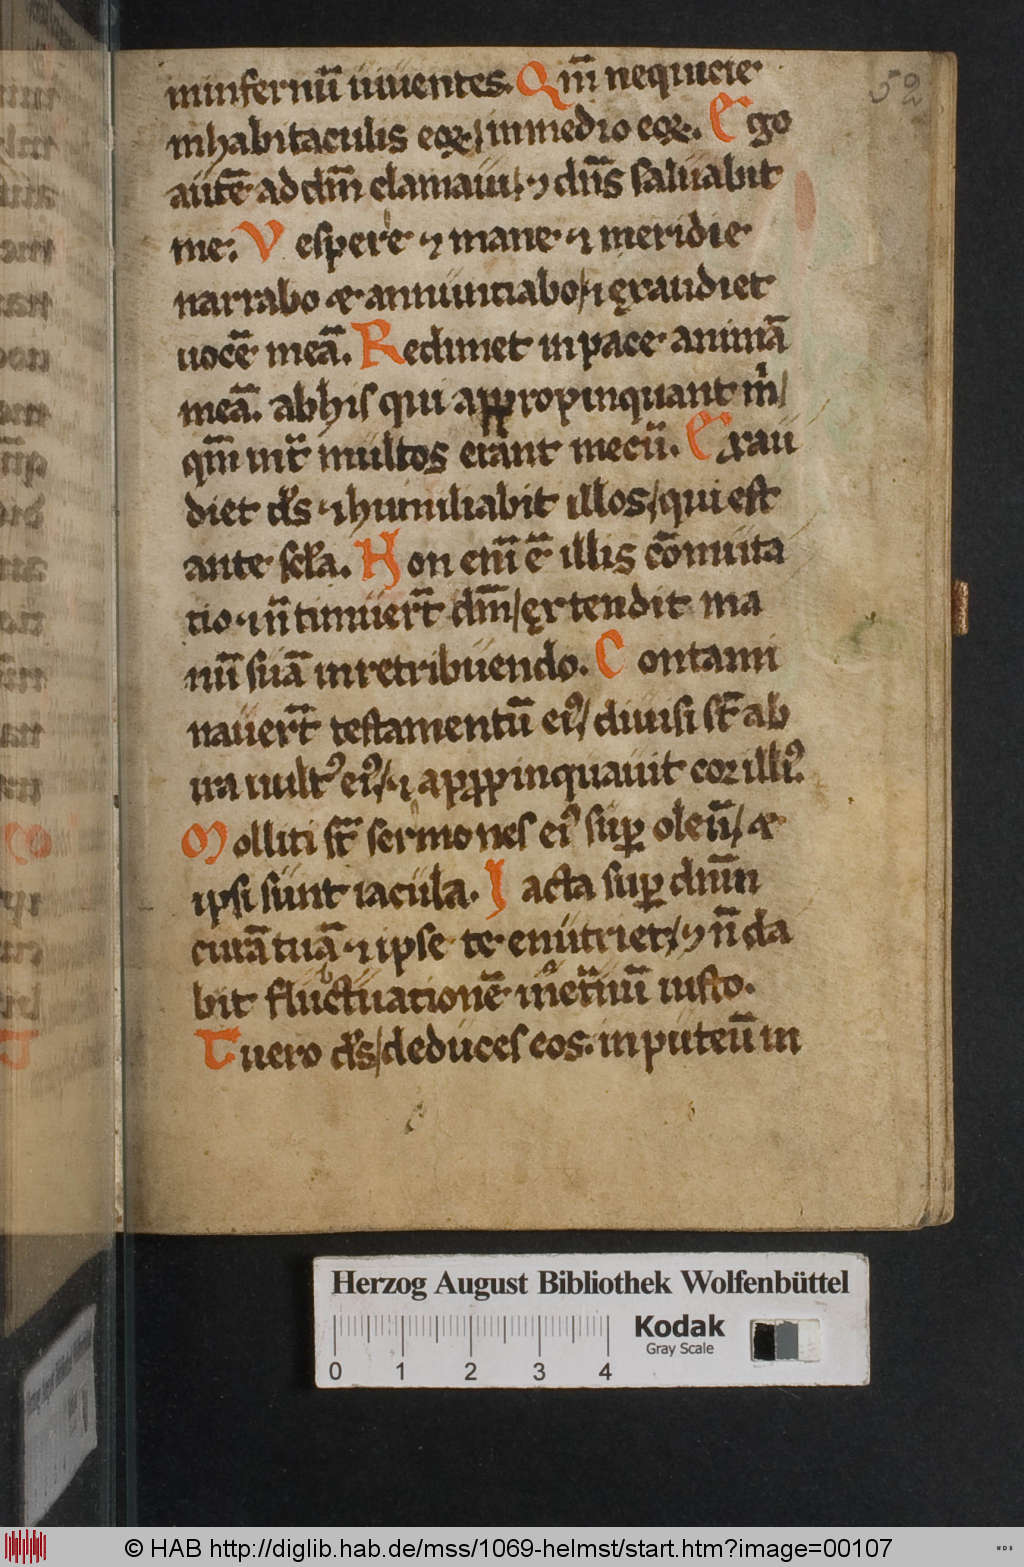 52
ininfernū uiuentes. Qm̄ nequicie
inhabitaculis eoꝝ/ inmedio eoꝝ. Ego
autē ad dm̄ clamaui/ ⁊ dn̄s saluabit
me: Vespere ⁊ mane ⁊ meridie
narrabo & annuntiabo/ ⁊ exaudiet
uocē meā. Redimet inpace animā
meā. abhis qui appropinquant m̄/
qm̄ int̄ multos erant mecū. Exau
diet ds̄ ⁊ humiliabit illos/ qui est
ante scl̄a. Non enī ē illis cōmuta
tio ⁊ n̄ timuer̄t dm̄/ extendit ma
nū suā inretribuendo. Contami
nauer̄t testamentū ei⁹/ diuisi st̄ ab
ira uult⁹ ei⁹/ ⁊ apꝓpinquauit cor illi⁹.
Molliti st̄ sermones ei⁹ suꝑ oleū/ &
ipsi sunt iacula. Iacta suꝑ dnm̄
curā tuā ⁊ ipse te enutriet/ ⁊ n̄ da
bit fluctuationē inet̄nū iusto.
Tu uero ds̄/ deduces eos. inputeū in
Herzog August Bibliothek Wolfenbüttel
Kodak
Gray Scale
0 1 2 3 4
© HAB http://diglib.hab.de/mss/1069-helmst/start.htm?image=00107